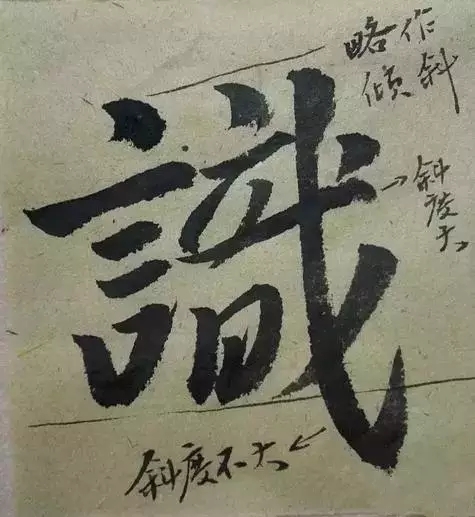 識
略作
倾斜
斜度大
斜度不大